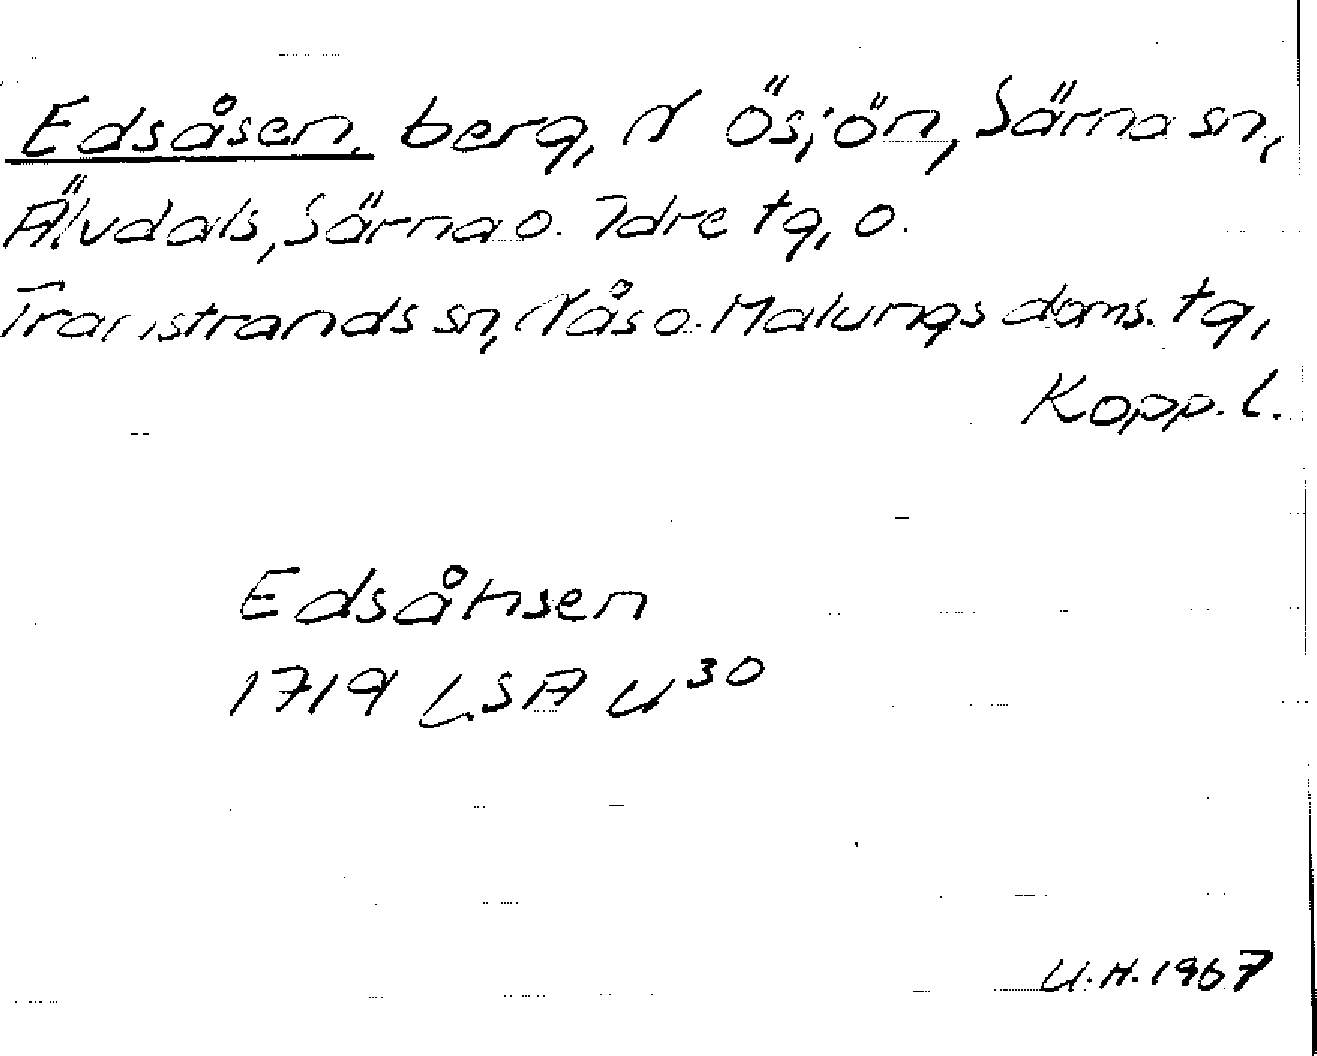 Edsåsen, berg, N Ösjön, Särna sn,
Älvdals, Särna o. Idre tg, o.
Transtrands sn, Nås o. Malungs doms. tg,
Kopp. l.
Edsåhsen
1719 LSA U³⁰
U.H. 1967